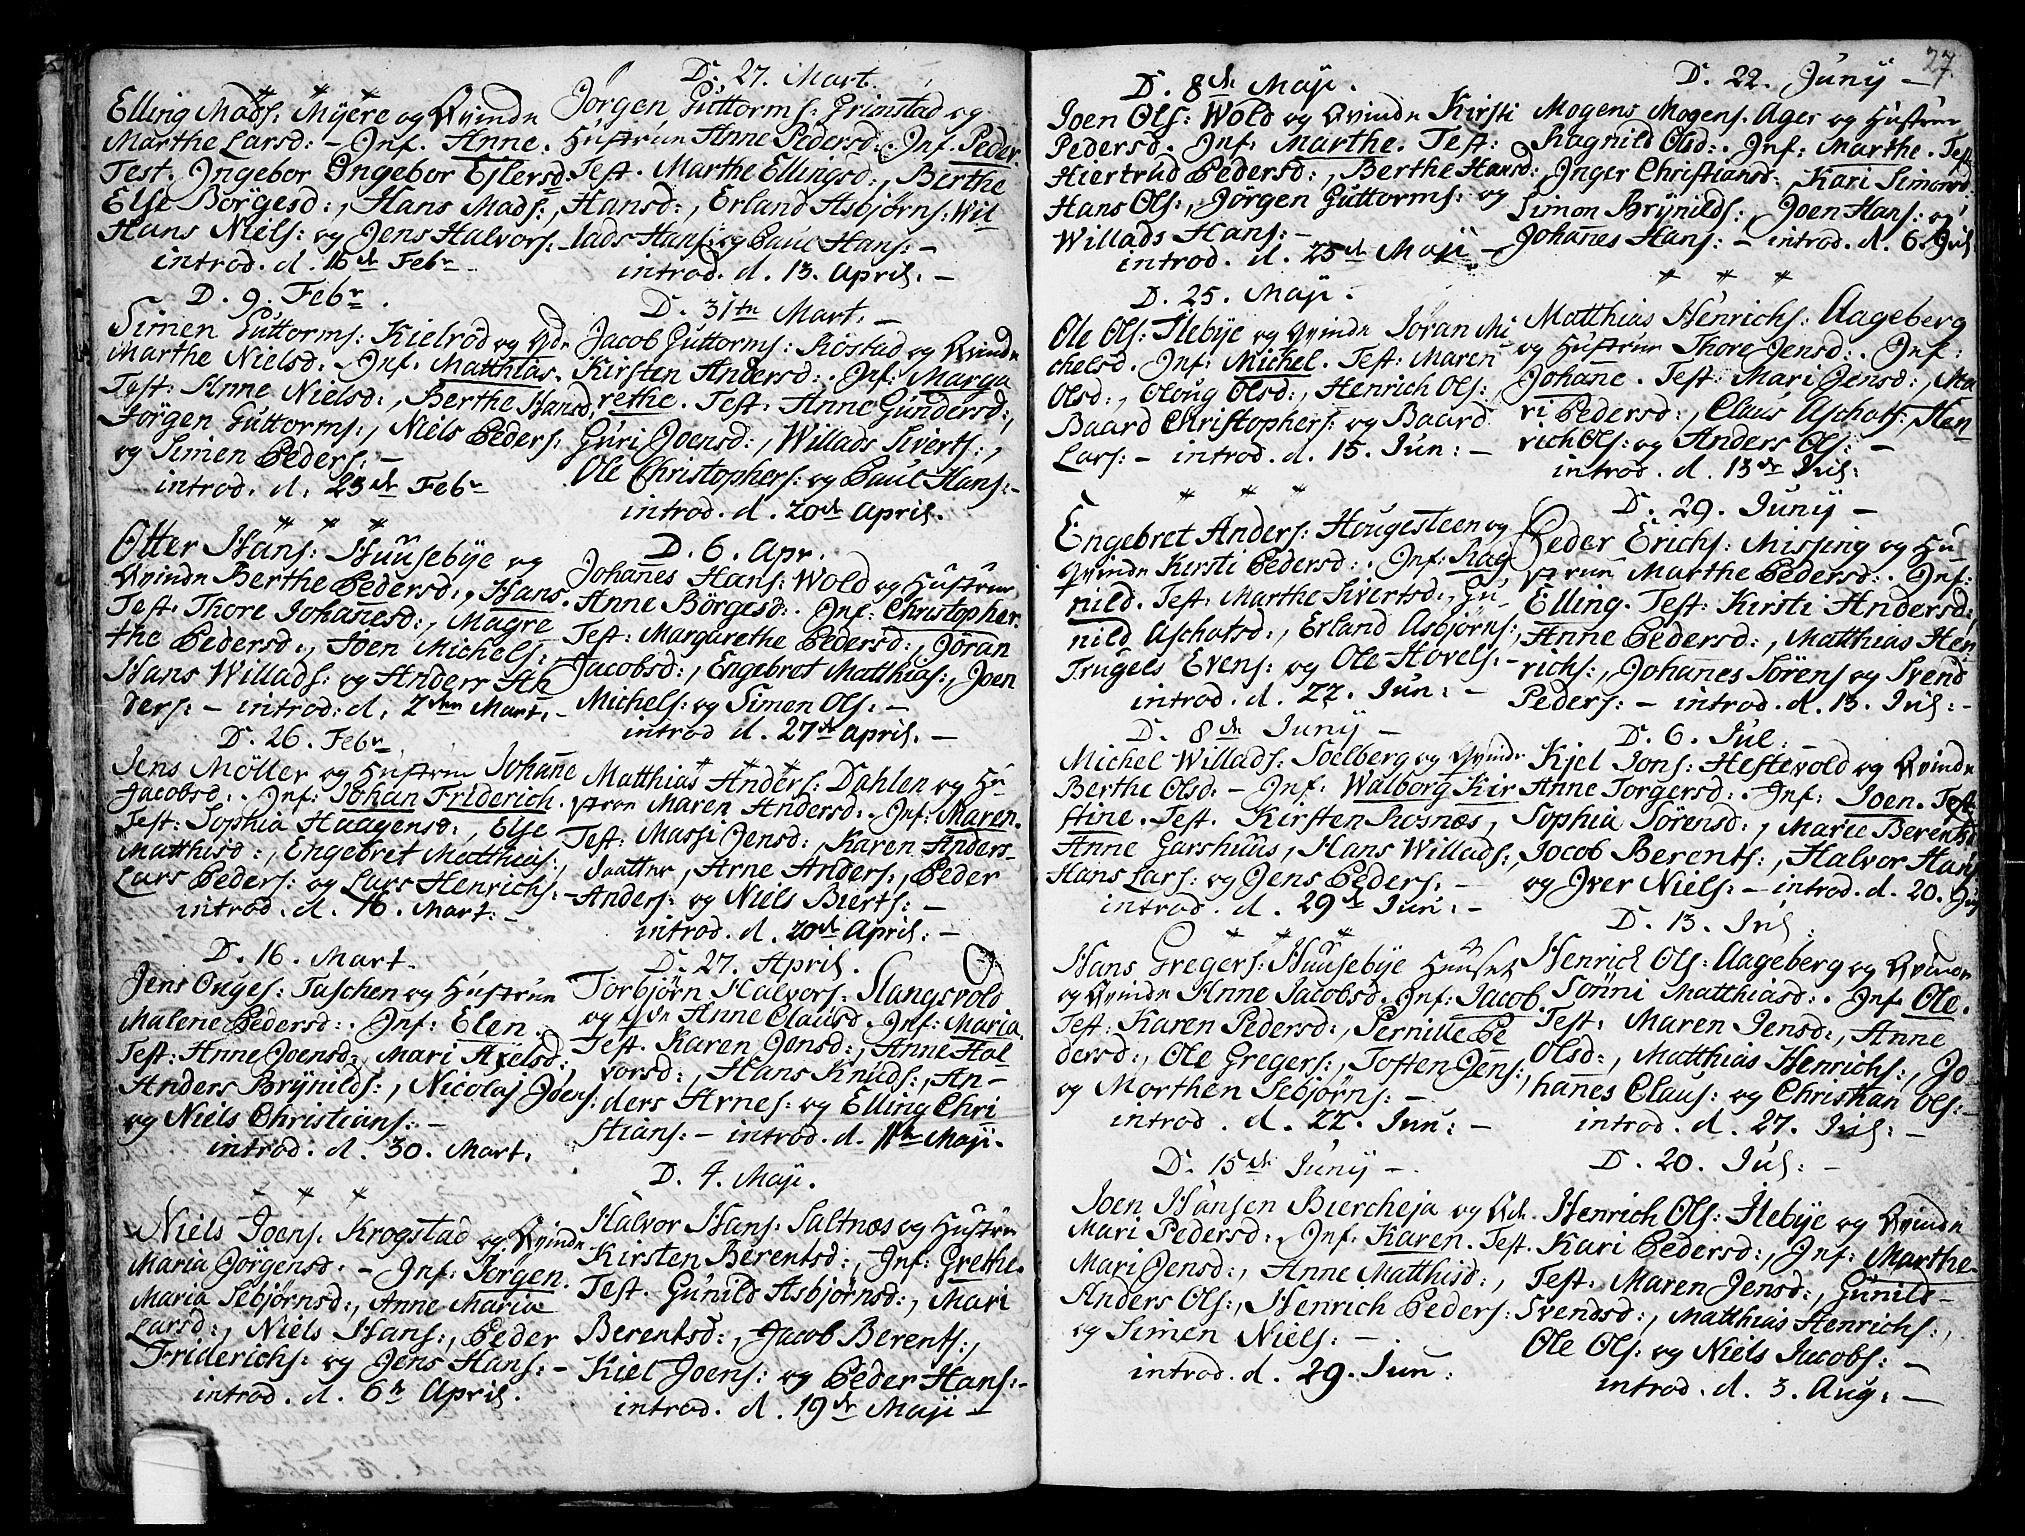 * * *
Elling Mads: Myere og Qvinde
Marthe Larsd: - Inf. Anne.
Test. Ingebor Ingebor Ejlersd:
Else Börgesd:, Hans Mads:,
Hans Niels: og Jens Halvors:
introd. d. 16de Febr.
D. 9. Febr.
Simen Guttorms: Kielröd og Qde
Marthe Nielsd. Inf. Matthias.
Test: Anne Nielsd:, Berthe Hansd,
Jörgen Guttorms:, Niels Peders:
og Simen Peders: -
introd. d. 23de Febr
* * *
Otter Hans: Huusebÿe og
Qvinde Berthe Pedersd:, Hans.
Test. Thore Johanesd:, Magre
the Pedersd:, Joen Michels:
Hans Willads: og Anders An
ders: - introd: d. 2den Mart. -
D. 26. Febr
Jens Möller og Hustrue Johane
Jacobsd:. Inf: Johan Friderich.
Test: Sophia Haagensd:, Else
Matthisd:, Engebret Matthias:,
Lars Peders: og Lars Henrichs: -
introd. d. 16. Mart: -
D. 16. Mart.
Jens Ouges: Taschen og Hustrue
Malene Pedersd:. Inf: Elen.
Test: Anne Joensd: Mari Axelsd:,
Anders Brÿnilds:, Nicolaj Joens:
og Niels Christians: -
introd. d. 30. Mart.
* * *
Niels Joens. Krogstad og Qvinde
Maria Jörgensd: - Inf: Jörgen.
Maria Sebjörnsd:, Anne Maria
Larsd:, Niels Hans:, Peder
Friderichs: og Jens Hans: -
introd. d. 6te April.
D. 27. Mart.
Jörgen Guttorms: Grimstad og
Hustrue Anne Pedersd: Inf: Peder.
Test. Marthe Ellingsd:, Berthe
Hansd:, Erland Asbjörns: Wil
lads Hans: og Paul Hans: -
introd. d. 13. April. -
D. 31te Mart. -
Jacob Guttorms: Rostad og Qvinde
Kirsten Andersd:. Inf: Marga
rethe. Test: Anne Gundersd:,
Guri Joensd:, Willads Siverts:,
Ole Christophers: og Paul Hans: -
introd. d. 20de April.
D. 6. Apr.
Johanes Hans: Wold og Hustrue
Anne Börgesd:. Inf: Christopher.
Test: Margarethe Pedersd:, Jöran
Jacobsd:, Engebret Matthias:, Joen
Michels: og Simen Ols: -
introd d. 27de April. -
* * *
Matthias Anders: Dahlen og Hu
strue Maren Andersd:. Inf: Maren.
Test: Massi Jensd:, Karen Anders-
daatter, Arne Anders:, Peder
Anders: og Niels Bierts: -
introd. d. 20de April: -
D. 27. April.
Torbjörn Halvors: Slangsvold
og Qde Anne Clausd. Inf: Maria
Test. Karen Jensd:, Anne Hal
vorsd:, Hans Knuds:, An-
ders Arnes: og Elling Chri
stians: - introd. d. 11te Maji.
D. 4. Maji.
Halvor Hans: Saltnæs og Hustrue
Kirsten Berentsd:, Inf: Grethe.
Test. Gunild Asbjörnsd:, Mari
Berentsd:, Jacob Berents:,
Kiel Joens: og Peder Hans: -
introd. d. 19de Maji -
D. 8de Maji.
Joen Ols: Wold og Qvinde Kirsti
Pedersd. Inf: Marthe. Test:
Hiertrud Pedersd:, Berthe Hansd:,
Hans Ols:, Jörgen Guttorms: og
Willads Hans: -
introd. d. 25de Maji -
D. 25. Maji.
Ole Ols: Ilebÿe og Qvinde Jöran Mi
chelsd. Inf: Michel. Test: Maren
Olsd:, Oloug Olsd:, Henrich Ols:
Baard Christophers: og Baard
Lars: - introd. d. 15. Jun: -
* * *
Engebret Anders: Hougesteen og
Qvinde Kirsti Pedersd:. Inf: Rag
nild. Test: Marthe Sivertsd:, Gu-
nild Aschatsd:, Erland Asbjörns:,
Trugels Evens: og Ole Hovels: -
introd. d. 22. Jun: -
D. 8de Junij -
Michel Willads: Soelberg og Qvinde
Berthe Olsd: - Inf: Walborg Kir
stine. Test. Kirsten Rosnæs,
Anne Garshuus, Hans Willads:
Hans Lars: og Jens Peders: -
introd. d. 29de Jun: -
* * *
Hans Gregers: Huusebÿe Huuset
og Qvinde Anne Jacobsd. Inf: Jacob
Test: Karen Pedersd:, Pernille Pe
dersd:, Ole Gregers:, Toften Jens:,
og Morthen Sebjörns: -
introd. d. 22. Jun: -
D. 15de Junij -
Joen Hansen Biercheja og Qde.
Mari Pedersd:, Inf: Karen. Test.
Mari Jensd:, Anne Matthisd:,
Anders Ols:, Henrich Peders:
og Simen Niels: -
introd. d. 29. Jun:
27.
D. 22. Junij -
Mogens Mogens. Ager og Hustrue
Ragnild Olsd:. Inf: Marthe. Test:
Inger Christiansd:, Kari Simonsd
Simon Brÿnilds: Joen Hans: og
Johanes Hans: - introd. d. 6. Jul:
* * *
Matthias Henrichs: Aageberg
og Hustrue Thore Jensd:. Inf:
Johane. Test: Mari Jensd:, Ma
ri Pedersd:, Claus Aschats:, Hen
rich Ols: og Anders Ols: -
introd. d. 13de Jul:
D. 29. Junij -
Peder Erichs: Missing og Hu
strue Marthe Pedersd:. Inf:
Elling. Test: Kirsti Andersd:,
Anne Pedersd:, Matthias Hen
richs:, Johanes Sörens og Svend
Peders: - introd. d. 13. Jul: -
D. 6. Jul: -
Kjel Jons: Hestevold og Qvinde
Anne Torgersd:. Inf: Joen. Test
Sophia Sörensd:, Marie Berentsd:
Jocob Berents:, Halvor Hans
og Jver Niels: - introd. d. 20. Jul
D. 13. Jul:
Henrich Ols: Aageberg og Qvinde
Sönni Matthiasd:. Inf. Ole.
Test. Maren Jensd:, Anne
Olsd:, Matthias Henrichs:, Jo
hanes Claus: og Christian Ols: -
introd. d. 27. Jul: -
D. 20. Jul: -
Henrich Ols: Ilebÿe og Qvinde
Kari Pedersd:, Inf: Marthe
Test: Maren Jensd:, Gunild
Svendsd:, Matthias Henrichs:,
Ole Ols: og Niels Jacobs: -
introd. d. 3. Aug: -